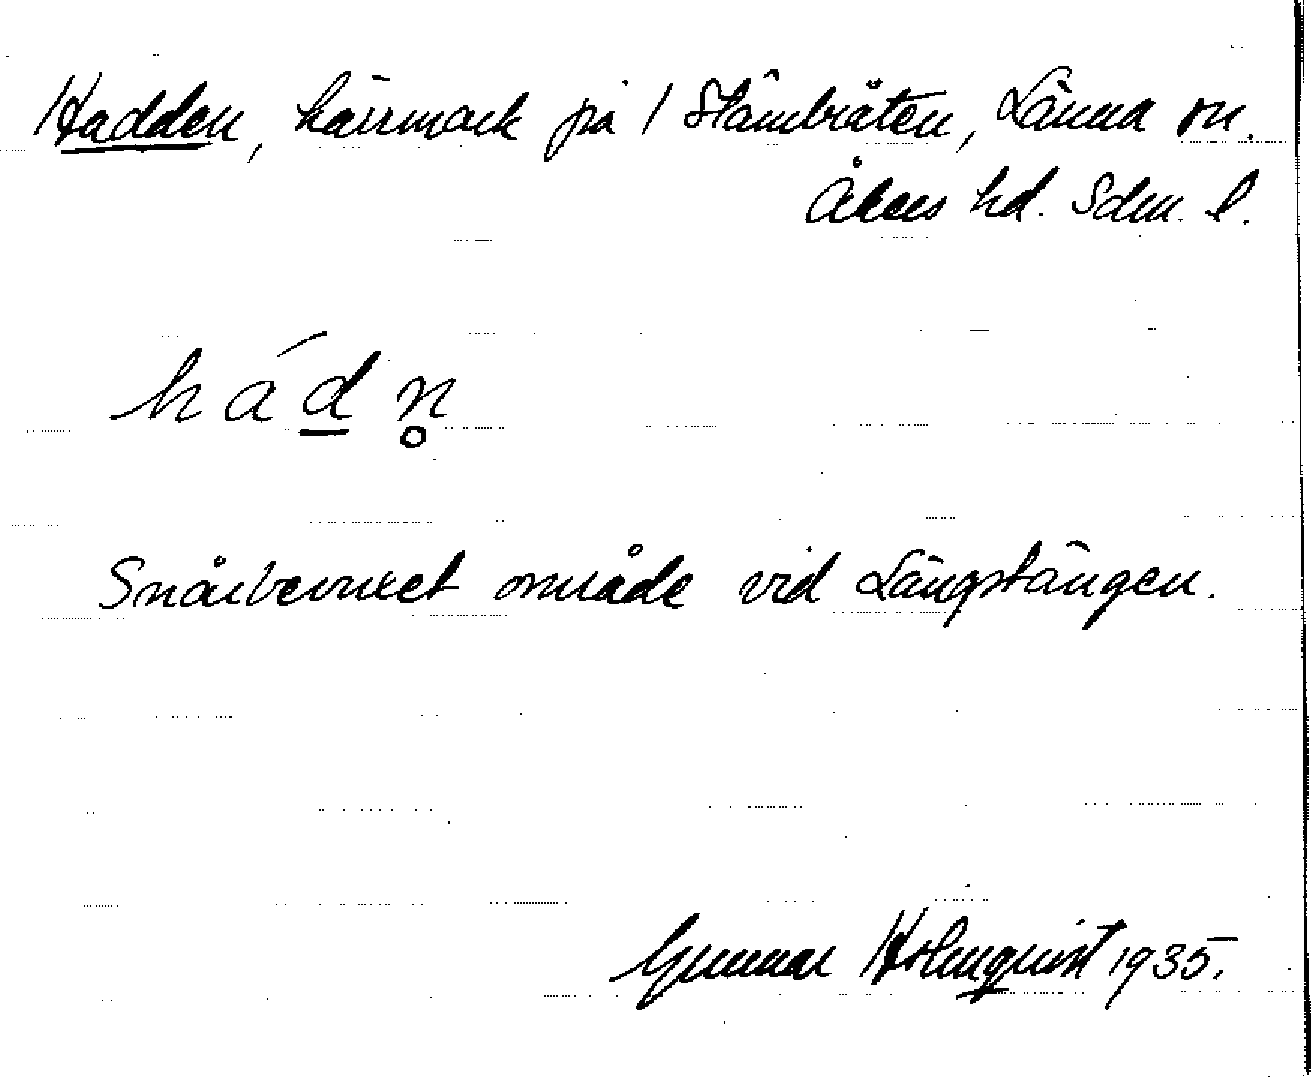 Hadden, kärrmark på / Stämbråten, Länna sn.
Åkers hd. Sdm. l.
há̱dn̥
Snårbevuxet område vid Långstången.
Gunnar Holmquist 1935.